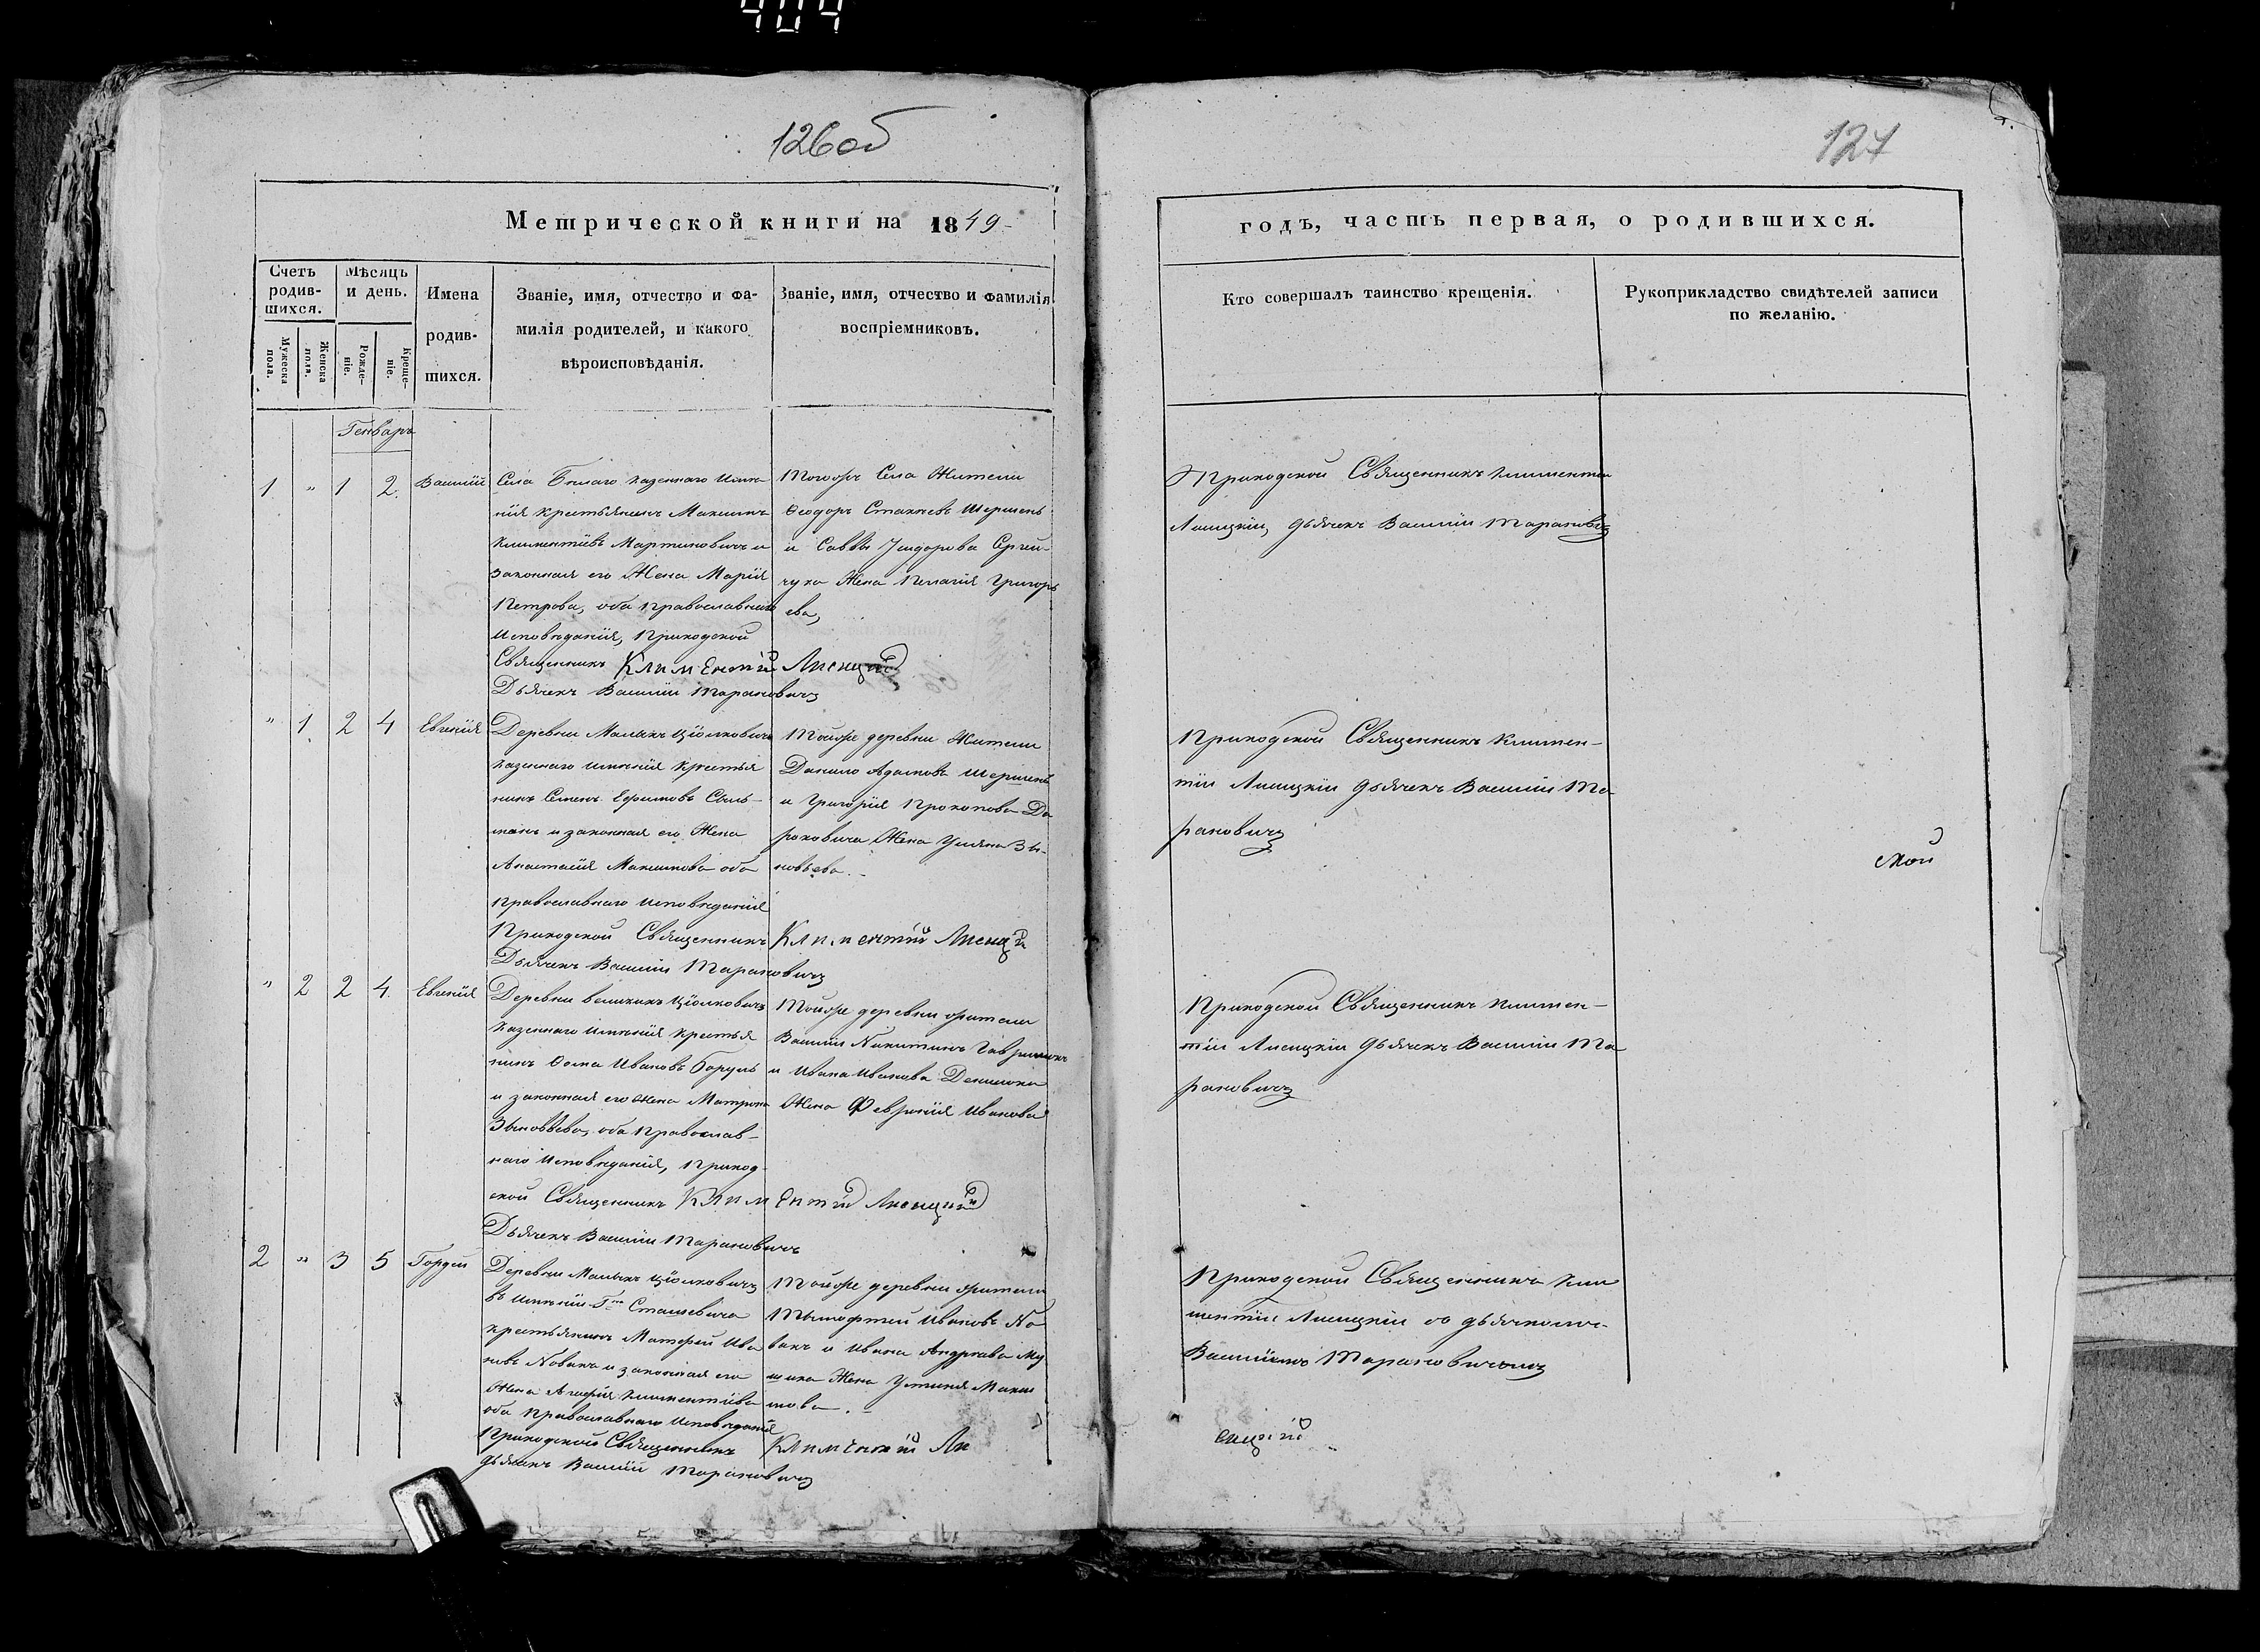 404
126об
127
Метрической книги на 1849
годъ, часть первая, о родившихся.
Счетъ родив-
шихся.
Мужеска пола.
Женска пола.
Мѣсяцъ
и день.
Рожде-
ніе.
Креще-
ніе.
Имена
родив-
шихся.
Званіе, имя, отчество и фа-
милія родителей, и какого
вѣроисповѣданія.
Званіе, имя, отчество и фамилія
воспріемниковъ.
Кто совершалъ таинство крещенія.
Рукоприкладство свидѣтелей записи
по желанію.
Генваръ
1 " 1 2. Василій
Села Бѣлаго казеннаго Имѣ-
нія крестьянинъ Максимъ
Климентіевъ Мартиновичъ и
законная его Жена Марія
Петрова, оба православнаго
Исповѣданія, Приходской
Священникъ Климентій Лисицкій
Дьячекъ Василій Тарановичъ
Тогожъ Села Жители
Ѳеодоръ Стахіевъ Шершень
и Саввы Исидорова Сергей-
чука Жена Пелагія Григорь
ева,
Приходской Священникъ Климентій
Лисицкій, дьячекъ Василій Тарановичъ
" 1 2 4 Евгенія
Деревни Малыхъ Цѣолковичъ
казеннаго имѣнія крестья
нинъ Семенъ Ефимовъ
и законная его Жена
Анастасія Максимова оба
православнаго Исповѣданія
Приходской Священникъ Климентій Лисицкій
Дьячекъ Василій Тарановичъ
Тойже деревни Жители
Данило Адамовъ Шершень
и Григорія Прокопова До
роховича Жена Уліяна Зѣ-
новьева.
Приходской Священникъ Климен-
тій Лисицкій дьячекъ Василій Та
рановичъ
" 2 2 4. Евгенія
Деревни великихъ Цѣолковичъ
казеннаго имѣнія крестья
нинъ Ѳома Ивановъ
и законная его жена Матрона
Зѣновьева, оба Православ-
наго Исповѣданія, Приход-
ской Священникъ Климентій Лисицкій
Дьячекъ Василій Тарановичъ
Тойже деревни жители
Василій Никитинъ
и Ивана Иванова Денисюка
Жена Февронія Иванова
Приходской Священникъ Климен-
тій Лисицкій дьячекъ Василій Та
рановичъ
2 " 3 5 Гордей
Деревни Малыхъ Цѣолковичъ
въ имѣніи Гна Сташевича
крестьянинъ Матфей Ива
новъ Новакъ и законная его
Жена Агафія Климентіева
оба православнаго Исповѣданія
Приходской Священникъ Климентій Ли
сицкій
дьячекъ Василій Тарановичъ
Тойже деревни жители
Тымофтей Ивановъ Но
вакъ и Ивана Андреева
Жена Устинія Макси
мова.
Приходской Священникъ Кли
ментій Лисицкій съ дьячкомъ
Василіемъ Тарановичемъ